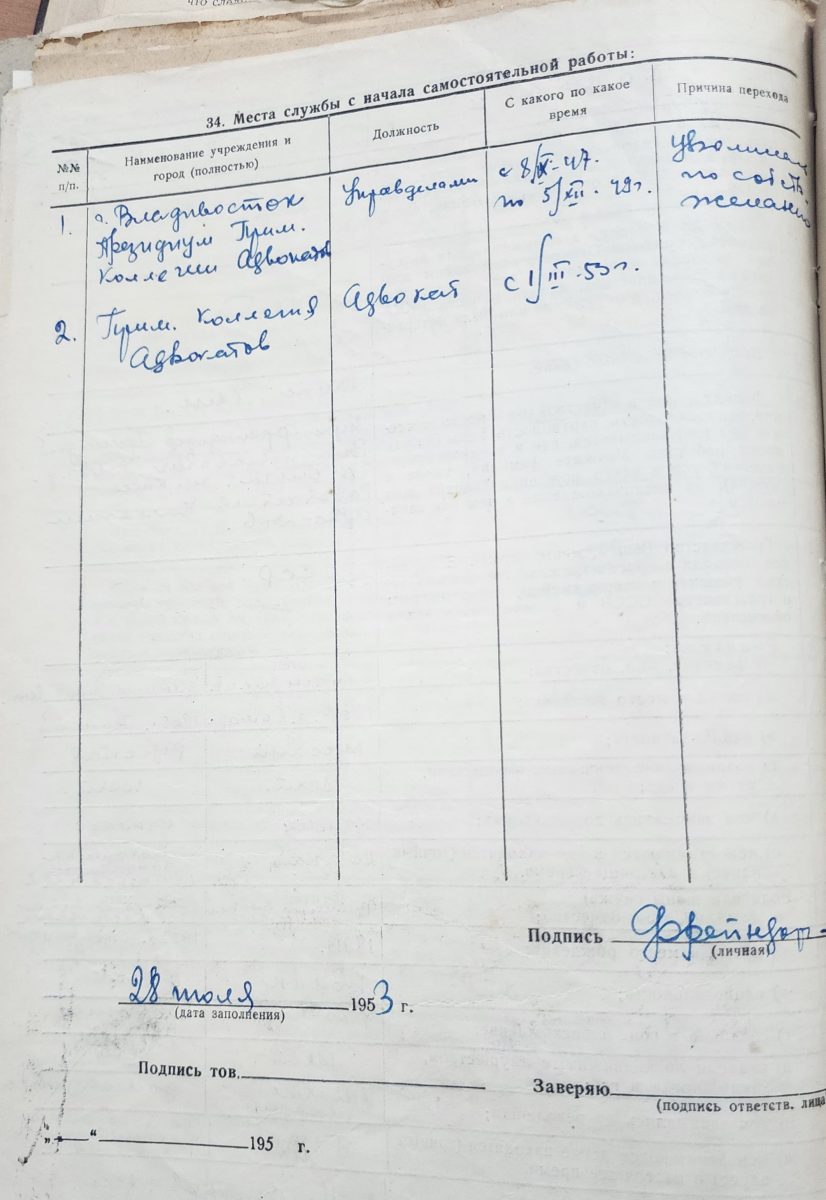 34. Места службы с начала самостоятельной работы:
№№ п/п.
Наименование учреждения и город (полностью)
Должность
С какого по какое время
Причина перехода
1.
г. Владивосток
Президиум Прим.
Коллегии Адвокатов
Управделами
с 8/ -47.
по 5/XII-49г.
по собств.
желанию
2.
Прим. Коллегия
Адвокатов
Адвокат
с 1/III-53г.
Подпись
(личная)
28 июля 1953 г.
(дата заполнения)
Подпись тов.
Заверяю
(подпись ответств. лица
„ “ 195 г.